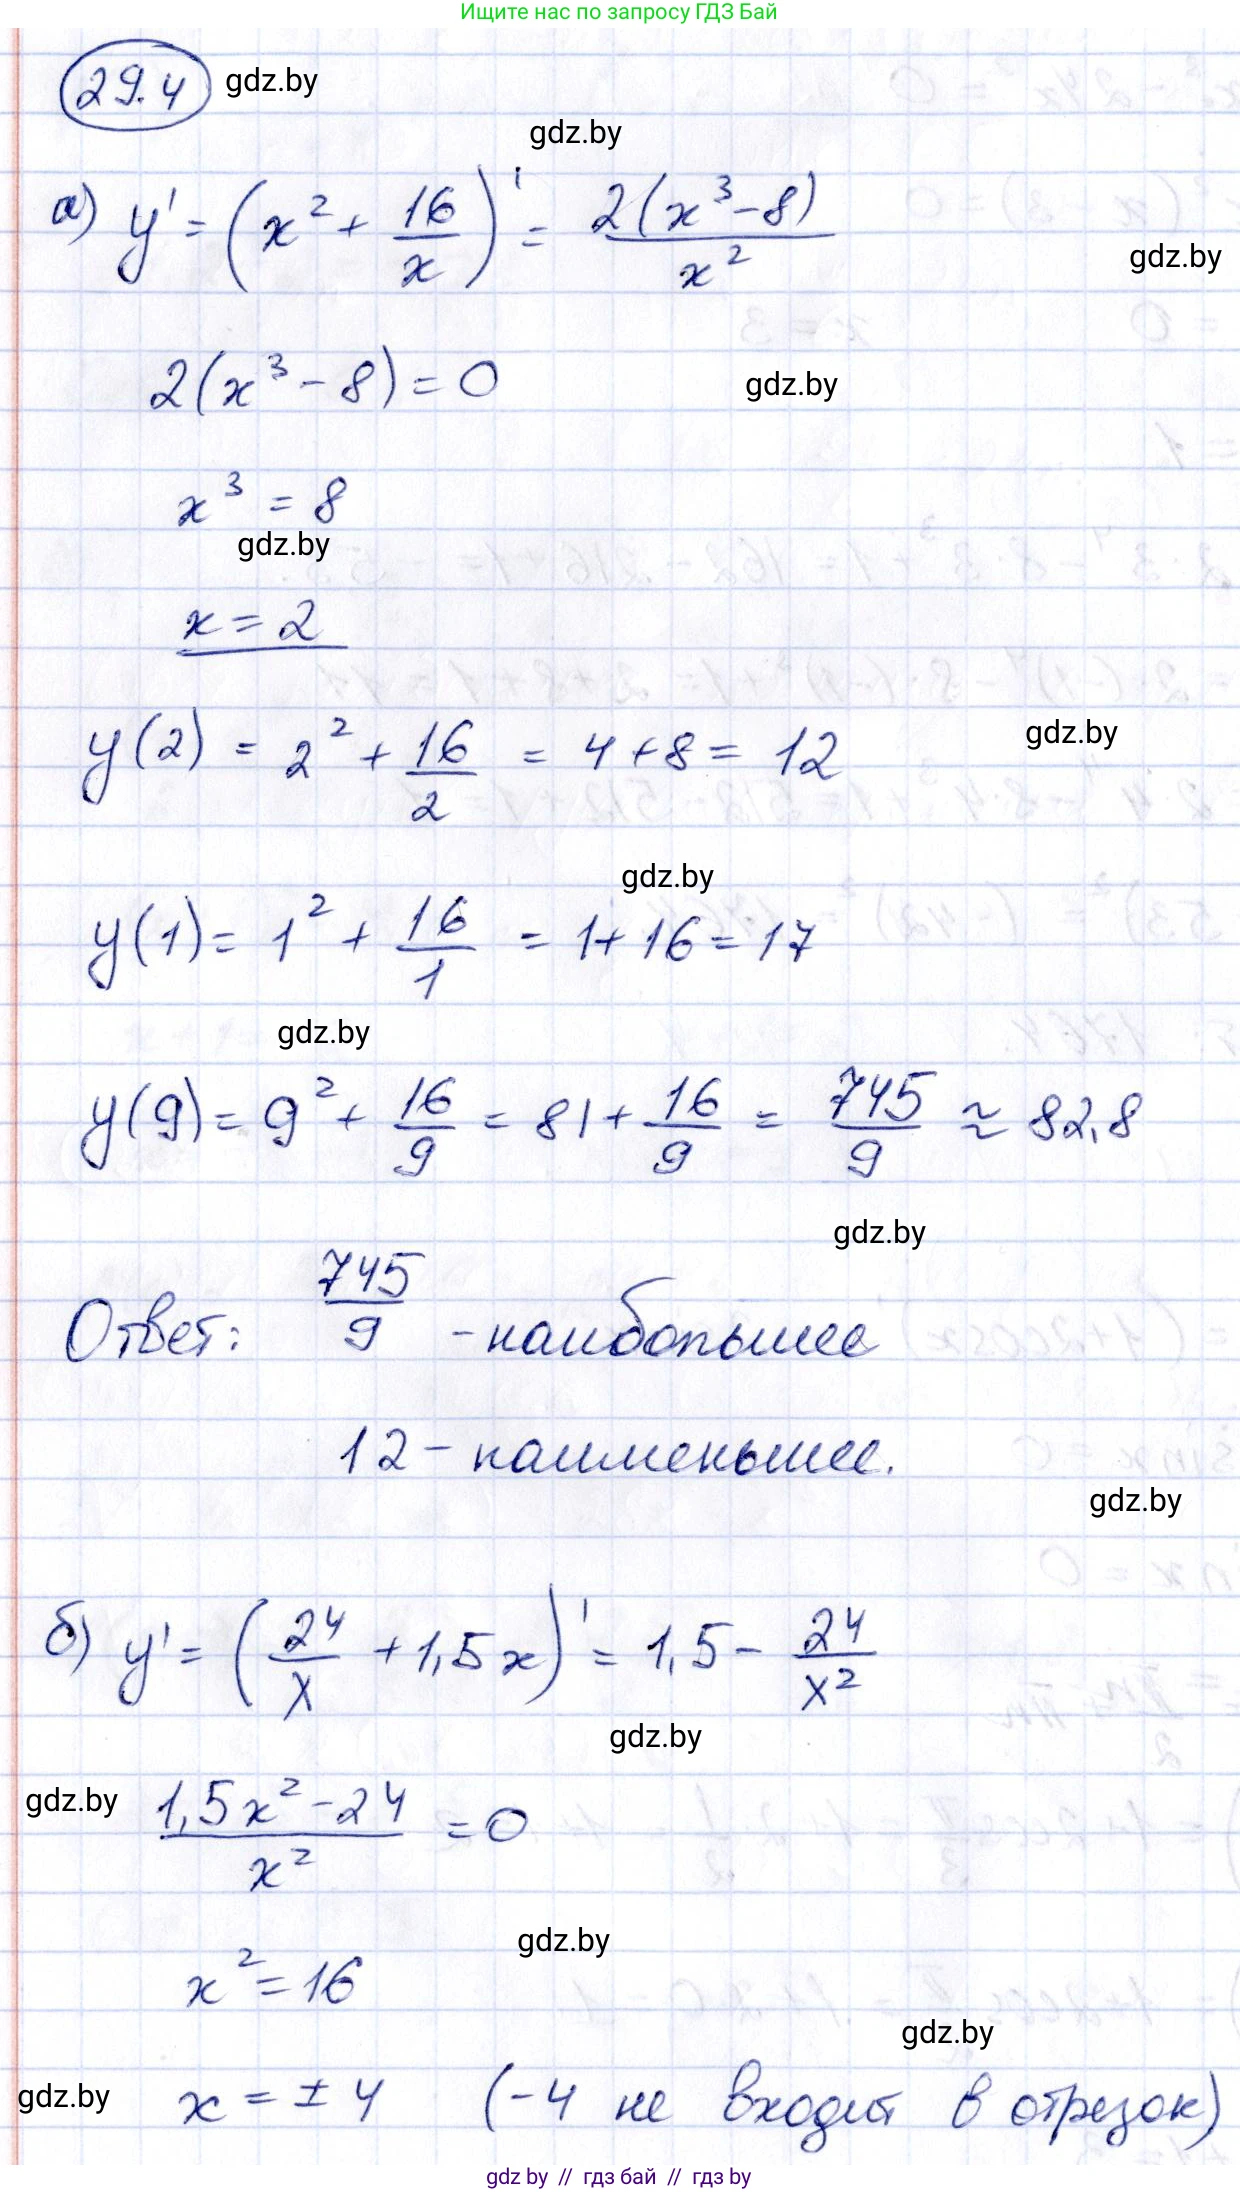 Ищите нас по запросу ГДЗ Бай
29.4 gdz.by
gdz.by
а) y' = (x² + 16/x)' = 2(x³-8)/x²
gdz.by
2(x³-8)=0
gdz.by
x³ = 8
gdz.by
x = 2
y(2) = 2² + 16/2 = 4+8 = 12
gdz.by
gdz.by
y(1) = 1² + 16/1 = 1+16 = 17
gdz.by
y(9) = 9² + 16/9 = 81 + 16/9 = 745/9 ≈ 82,8
gdz.by
Ответ: 745/9 - наибольшее
12 - наименьшее.
gdz.by
б) y' = (24/x + 1,5x)' = 1,5 - 24/x²
gdz.by
gdz.by (1,5x²-24)/x² = 0
gdz.by
x² = 16
gdz.by
gdz.by x = ± 4 (-4 не входит в отрезок)
gdz.by // гдз бай // гдз by